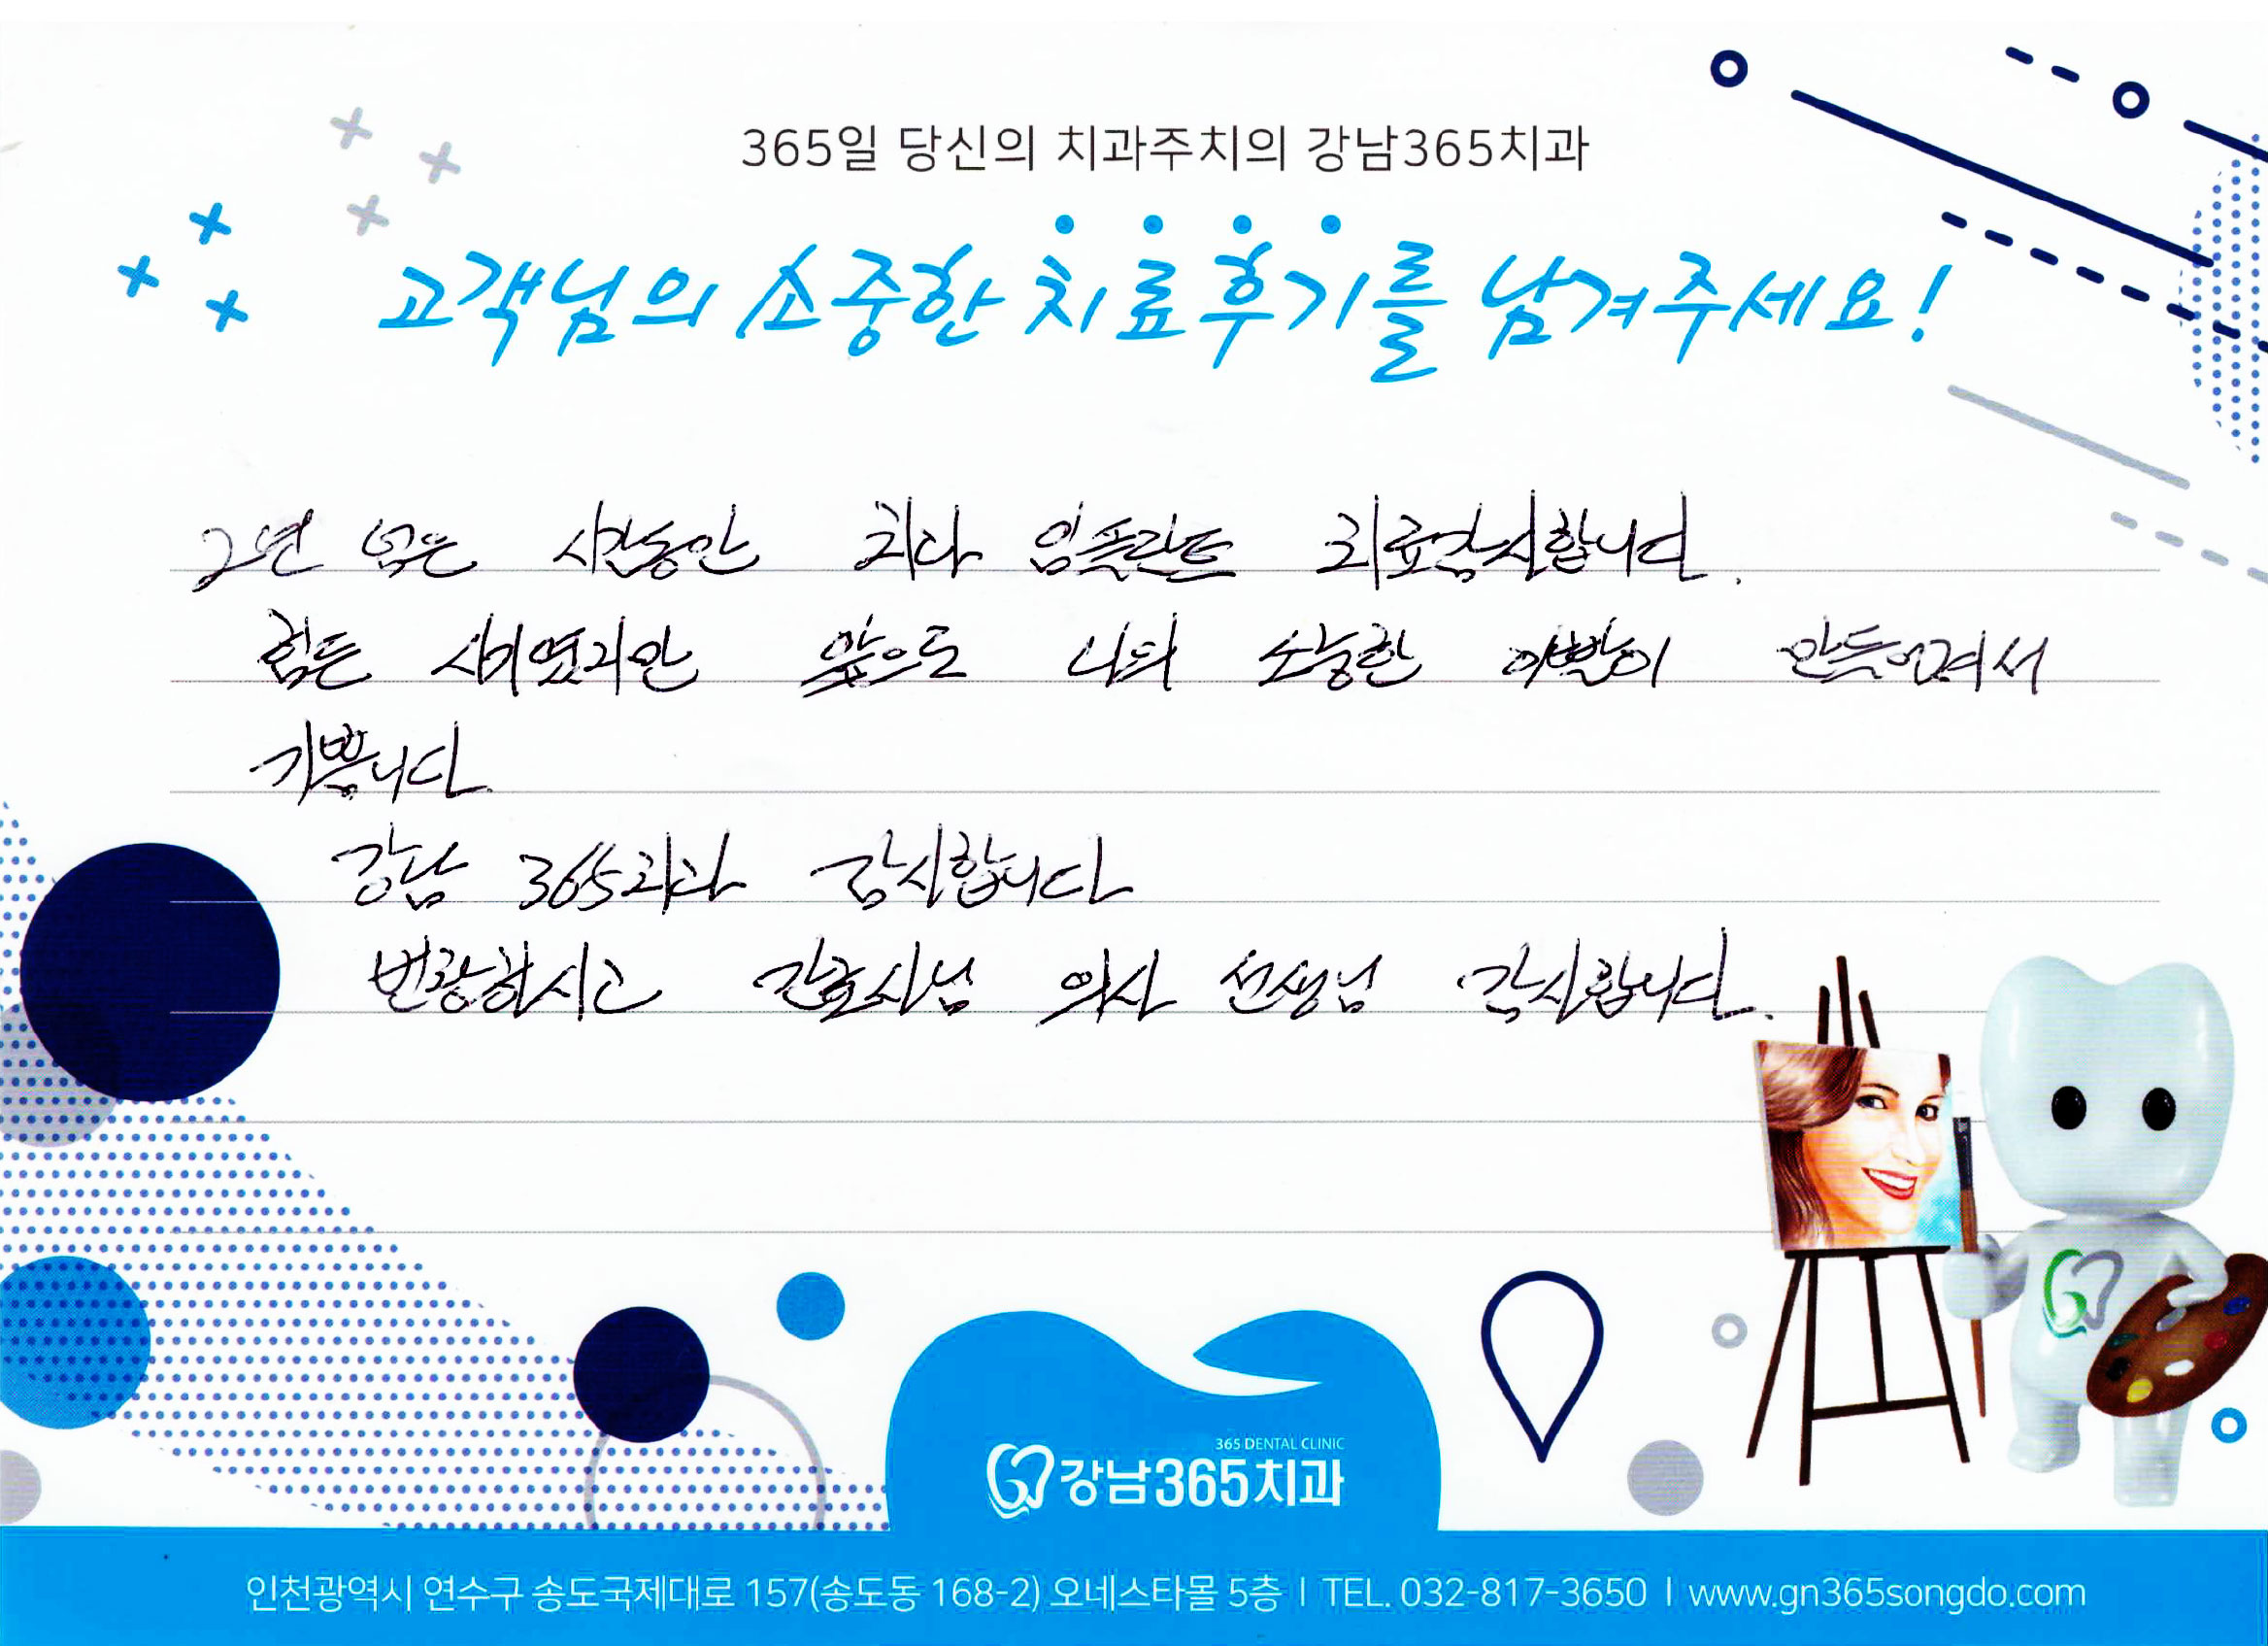 365일 당신의 치과주치의 강남365치과
고객님의 소중한 치료후기를 남겨주세요!
2년 넘은 시간동안 치과 임플란트 치료감사합니다.
힘든 시기였지만 앞으로 나의 소중한 이빨이 만들어져서
기쁨니다.
강남 365치과 감사합니다
번창하시고 간호사님 의사 선생님 감사합니다.
365 DENTAL CLINIC
강남365치과
인천광역시 연수구 송도국제대로 157(송도동 168-2) 오네스타몰 5층 I TEL. 032-817-3650 I www.gn365songdo.com